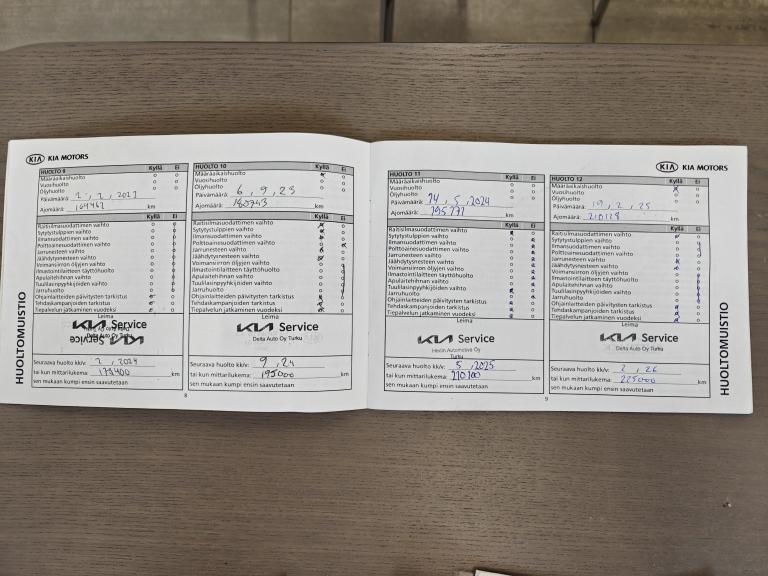 KIA KIA MOTORS
HUOLTOMUISTIO
HUOLTO 9 Kyllä Ei
Määräaikaishuolto
Vuosihuolto
Öljyhuolto
Päivämäärä:
Ajomäärä: km
Kyllä Ei
Raitisilmasuodattimen vaihto
Sytytystulppien vaihto
Ilmansuodattimen vaihto
Polttoainesuodattimen vaihto
Jarrunesteen vaihto
Jäähdytysnesteen vaihto
Voimansiirron öljyjen vaihto
Ilmastointilaitteen täyttöhuolto
Apulaitehihnan vaihto
Tuulilasinpyyhkijöiden vaihto
Jarruhuolto
Ohjainlaitteiden päivitysten tarkistus
Tehdaskampanjoiden tarkistus
Tiepalvelun jatkaminen vuodeksi
Leima
KIA Service
Delta Auto Oy Turku
KIA Service
Seuraava huolto kk/v: 2, 2024
tai kun mittarilukema: 179400 km
sen mukaan kumpi ensin saavutetaan
8
HUOLTO 10 Kyllä Ei
Määräaikaishuolto
Vuosihuolto
Öljyhuolto
Päivämäärä: 6, 9, 23
Ajomäärä: 180743 km
Kyllä Ei
Raitisilmasuodattimen vaihto
Sytytystulppien vaihto
Ilmansuodattimen vaihto
Polttoainesuodattimen vaihto
Jarrunesteen vaihto
Jäähdytysnesteen vaihto
Voimansiirron öljyjen vaihto
Ilmastointilaitteen täyttöhuolto
Apulaitehihnan vaihto
Tuulilasinpyyhkijöiden vaihto
Jarruhuolto
Ohjainlaitteiden päivitysten tarkistus
Tehdaskampanjoiden tarkistus
Tiepalvelun jatkaminen vuodeksi
Leima
KIA Service
Delta Auto Oy Turku
Seuraava huolto kk/v: 9, 24
tai kun mittarilukema: 195000 km
sen mukaan kumpi ensin saavutetaan
HUOLTO 11 Kyllä Ei
Määräaikaishuolto
Vuosihuolto
Öljyhuolto
Päivämäärä: 14, 5, 2024
Ajomäärä: 195771 km
Kyllä Ei
Raitisilmasuodattimen vaihto
Sytytystulppien vaihto
Ilmansuodattimen vaihto
Polttoainesuodattimen vaihto
Jarrunesteen vaihto
Jäähdytysnesteen vaihto
Voimansiirron öljyjen vaihto
Ilmastointilaitteen täyttöhuolto
Apulaitehihnan vaihto
Tuulilasinpyyhkijöiden vaihto
Jarruhuolto
Ohjainlaitteiden päivitysten tarkistus
Tehdaskampanjoiden tarkistus
Tiepalvelun jatkaminen vuodeksi
Leima
KIA Service
Hedin Automotive Oy
Turku
Seuraava huolto kk/v: 5, 2025
tai kun mittarilukema: 210700 km
sen mukaan kumpi ensin saavutetaan
9
KIA KIA MOTORS
HUOLTO 12 Kyllä Ei
Määräaikaishuolto
Vuosihuolto
Öljyhuolto
Päivämäärä: 19, 2, 25
Ajomäärä: 210128 km
Kyllä Ei
Raitisilmasuodattimen vaihto
Sytytystulppien vaihto
Ilmansuodattimen vaihto
Polttoainesuodattimen vaihto
Jarrunesteen vaihto
Jäähdytysnesteen vaihto
Voimansiirron öljyjen vaihto
Ilmastointilaitteen täyttöhuolto
Apulaitehihnan vaihto
Tuulilasinpyyhkijöiden vaihto
Jarruhuolto
Ohjainlaitteiden päivitysten tarkistus
Tehdaskampanjoiden tarkistus
Tiepalvelun jatkaminen vuodeksi
Leima
KIA Service
Delta Auto Oy Turku
Seuraava huolto kk/v: 2, 26
tai kun mittarilukema: 225000 km
sen mukaan kumpi ensin saavutetaan
HUOLTOMUISTIO